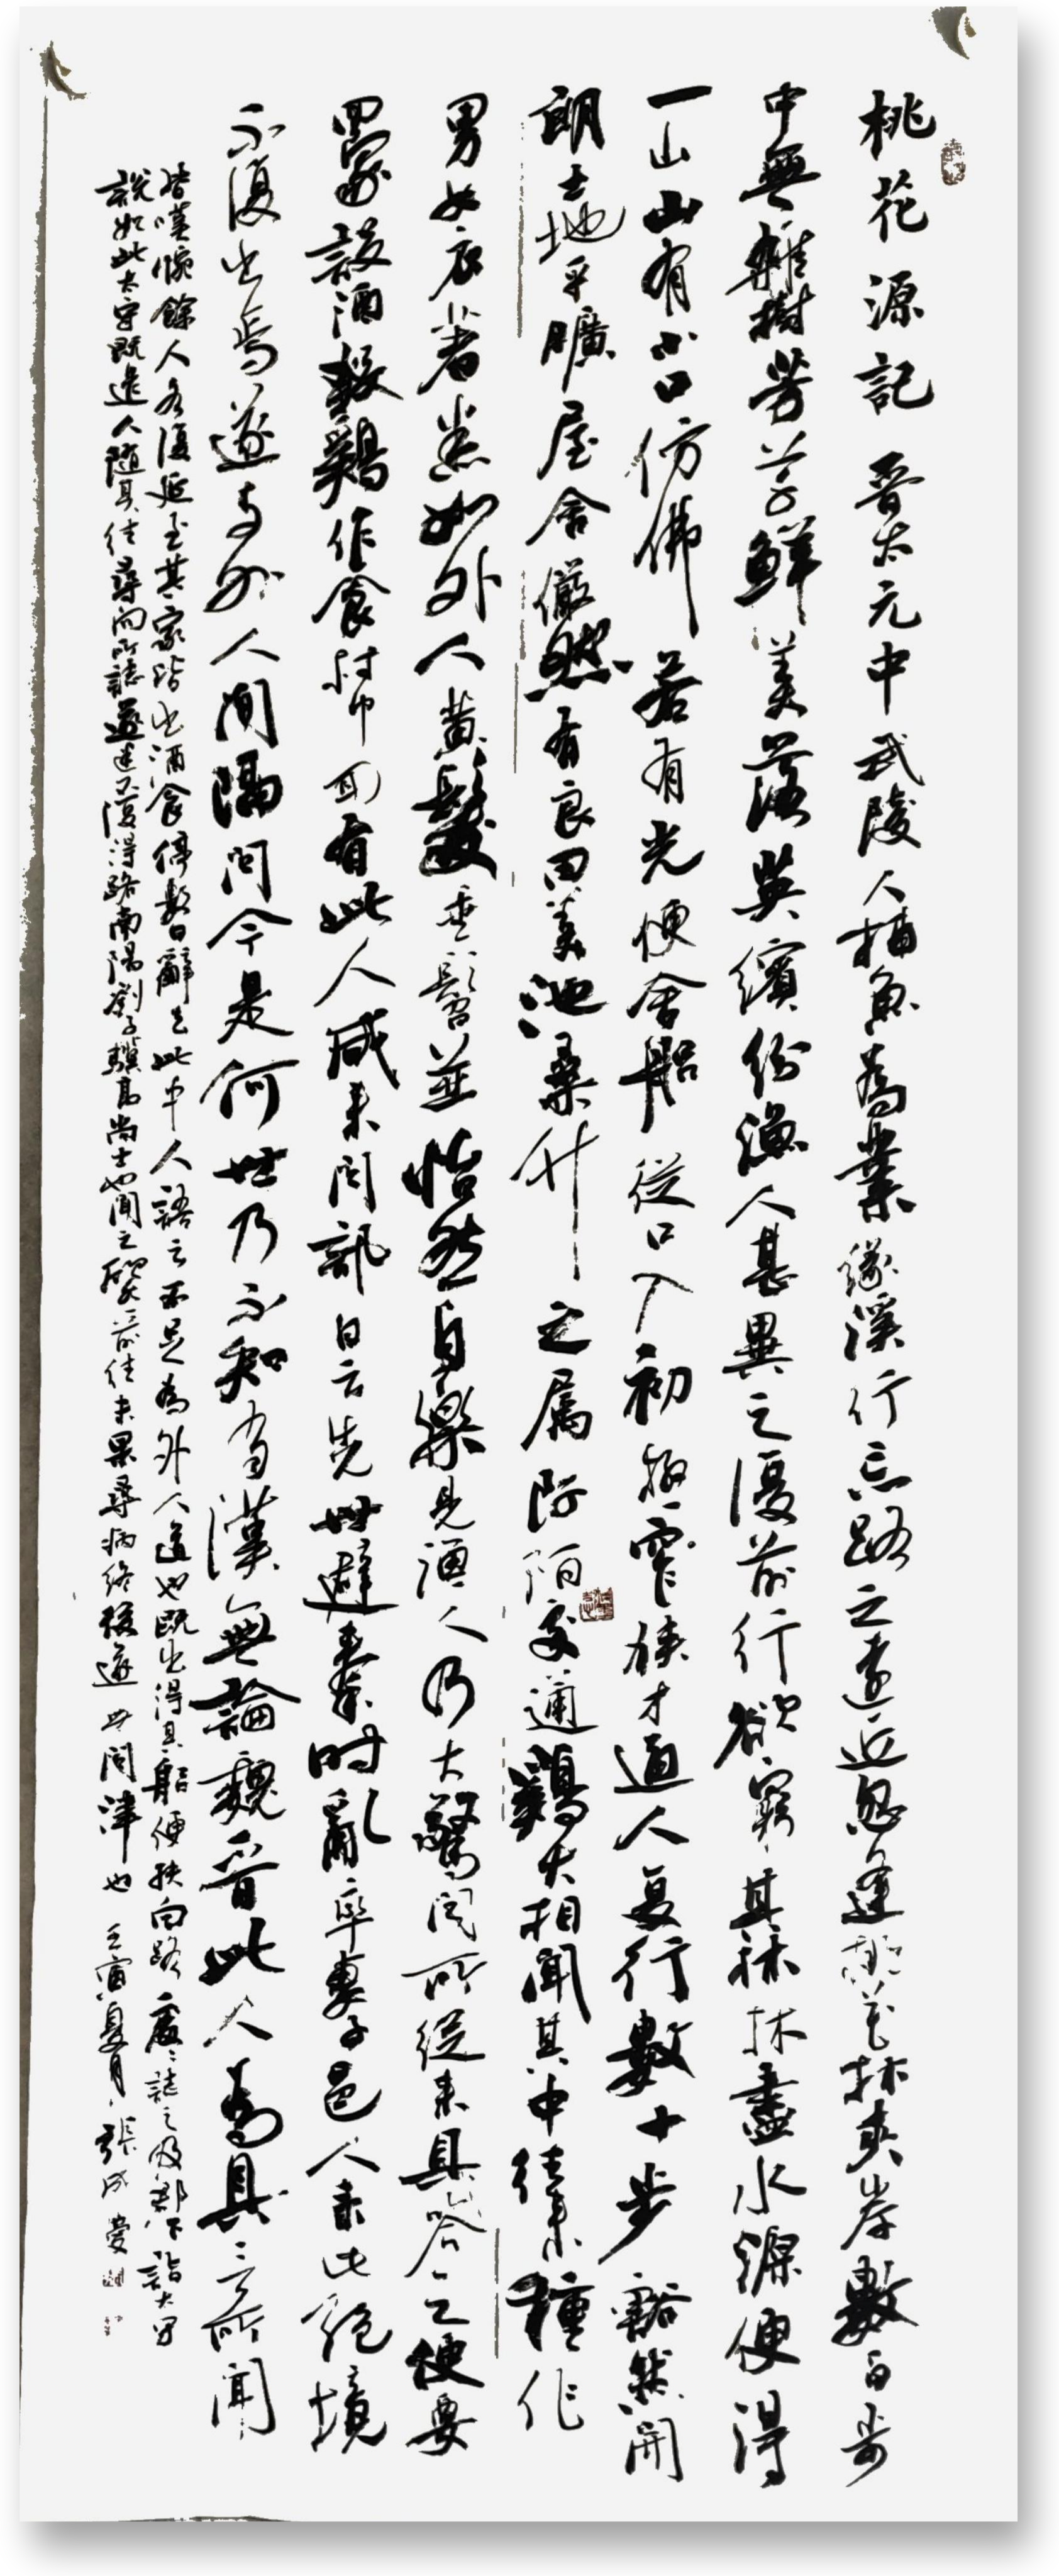 桃花源記 晉太元中武陵人捕魚為業緣溪行忘路之遠近忽逢桃花林夾岸數百步
中無雜樹芳草鮮美落英繽紛漁人甚異之復前行欲窮其林林盡水源便得
一山山有小口仿佛若有光便舍船從口入初極窄狹才通人复行數十步豁然開
朗土地平曠屋舍儼然有良田美池桑竹之属阡陌交通鷄犬相聞其中往來種作
男女衣着悉如外人黃髮垂髫並怡然自樂見漁人乃大驚问所從來具答之便要
還家設酒殺鷄作食村中聞有此人咸來问訊自云先世避秦时亂率妻子邑人來此絕境
不復出焉遂与外人间隔问今是何世乃不知有漢無論魏晉此人為具言所聞
皆嘆惋餘人各復延至其家皆出酒食停數日辭去此中人語云不足為外人道也既出得其船便扶向路處處誌之及郡下詣太守
說如此太守既遣人随其往尋向所誌遂迷不復得路南陽劉子驥高尚士也聞之欣然前往未果尋病終後遂無问津也 壬寅夏月張成